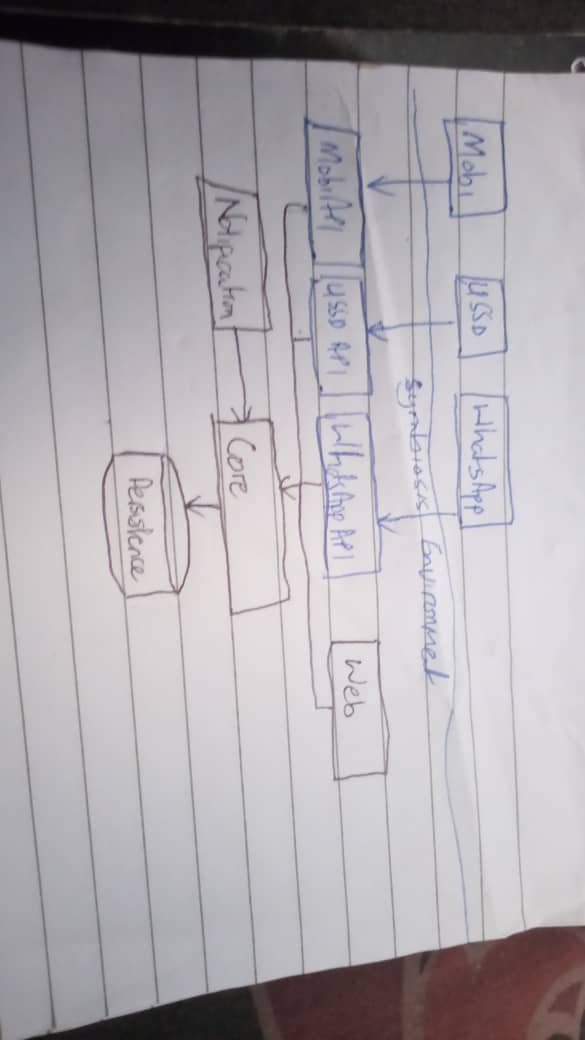 Mobi
USSD
WhatsApp
Symbiosis Environment
Mobi API
USSD API
WhatsApp API
Web
Notification
Core
Persistence